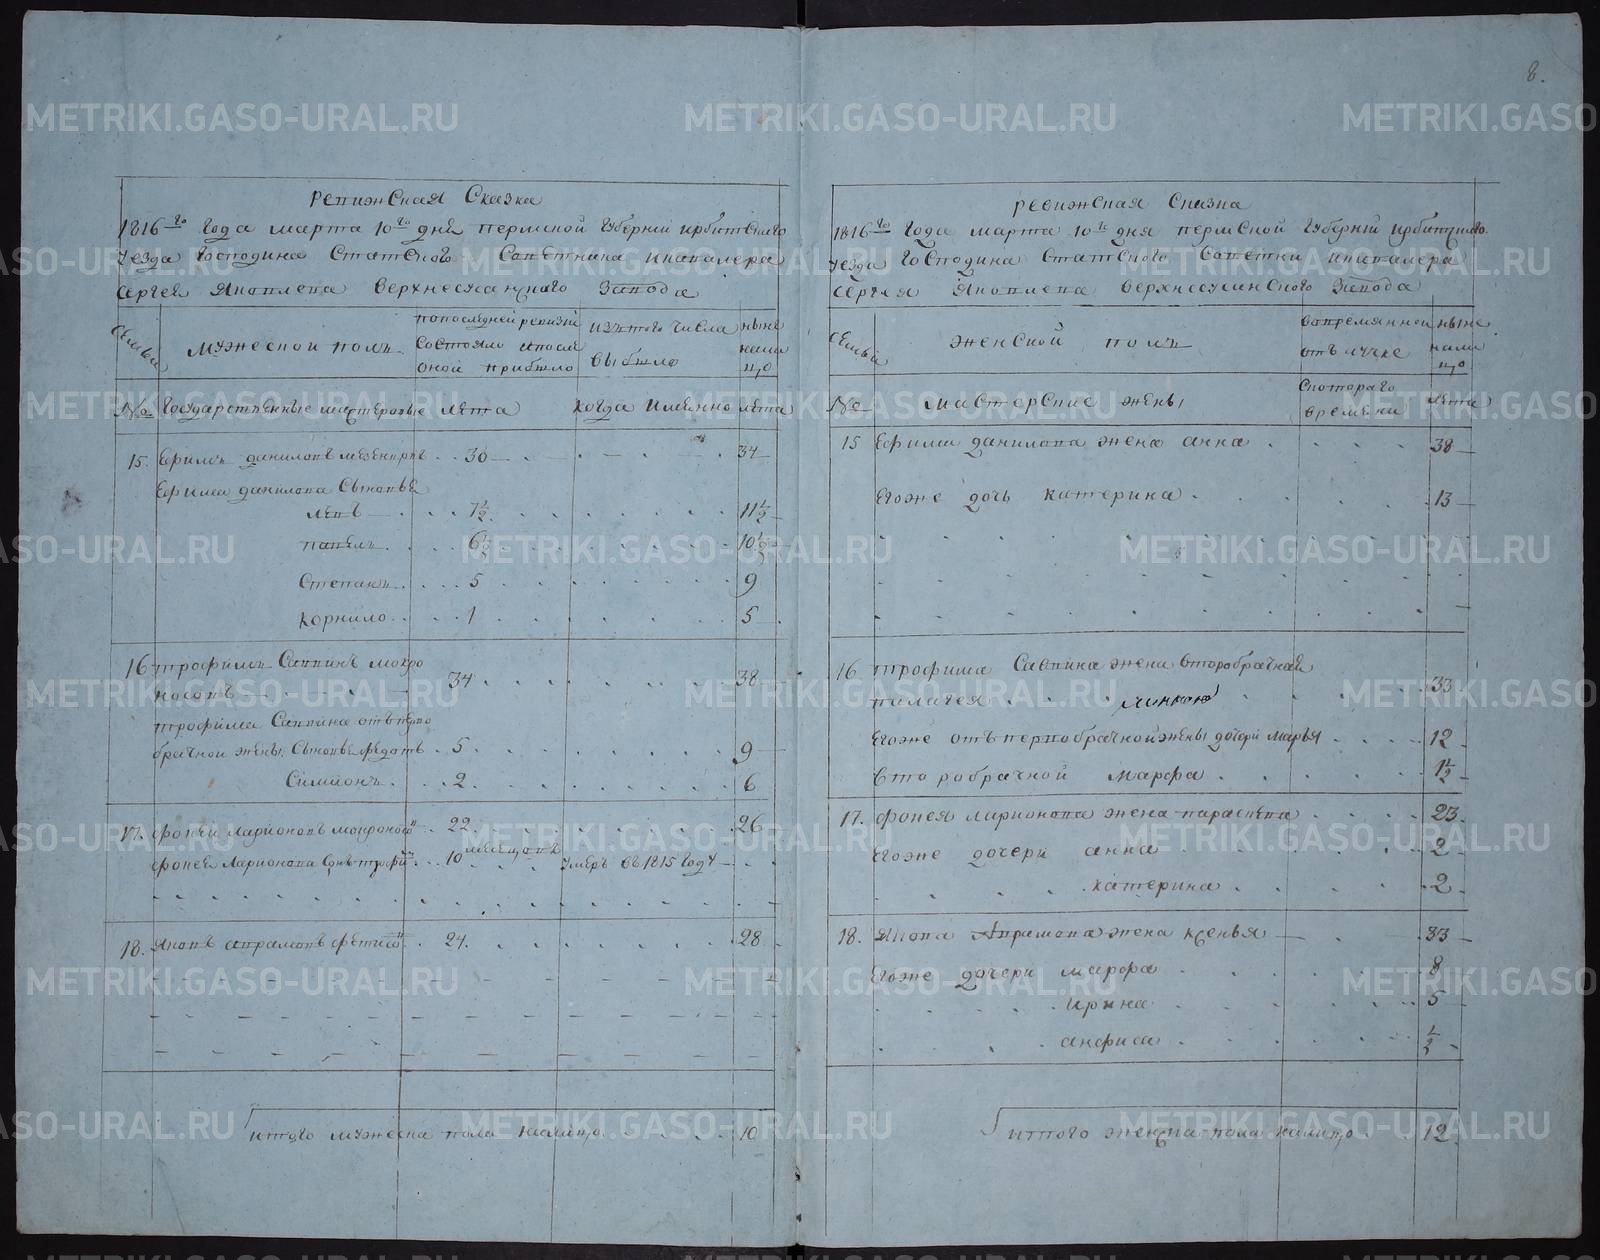 8.
Ревижская Сказка
1816го Года марта 10го дня пермской Губернiи ирбитского
уезда Господина Статского Советника икавалера
Сергея Яковлева верхнесусанского Завода
Семьи
мужеской полъ
попоследней ревизiи
состояло ипосле
оной прибыло
изътого числа
выбыло
ныне
нали
цо
No
Государственные мастеровые
лета
когда имянно
лета
15. Ефимъ даниловъ 30 34
Ефима данилова Сыновья
левъ 7½ 11½
павелъ 6½ 10½
Степанъ 5 9
Корнило 1 5
16 трофимъ Саввинъ мокро
носовъ 34 38
трофима Саввина отъ перво
брачной жены Сыновья федотъ 5 9
Симионъ 2 6
17. фокей Ларионовъ мокроносо 22 26
фокея Ларионова Сынъ трофи 10 месяцовъ умеръ в 1815 Году
18. Яковъ авраамовъ 24. 28
итого мужеска пола налицо 10
ревижская Сказка
1816го Года марта 10го дня пермской Губернiи ирбитского
уезда Господина Статского Советни икавалера
Сергея Яковлева верхнесусанского Завода
Семьи
женской полъ
вовремянной
отълучке
ныне
нали
цо
No
мастерские жены
Скотораго
времени
лета
15 Ефима данилова жена анна 38
Егоже дочь катерина 13
16 трофима Саввина жена второбрачная
палагея 33
Егоже отъ первобрачной жены дочери Марья 12
второбрачной марфа 1½
17. фокея ларионова жена парасковья 23
Егоже дочери анна 2
катерина 2
18. Якова Аврамова жена ксенья 33
Егоже дочери марфа 8
ирина 5
анфиса ½
итого женска пола налицо 12
METRIKI.GASO-URAL.RU